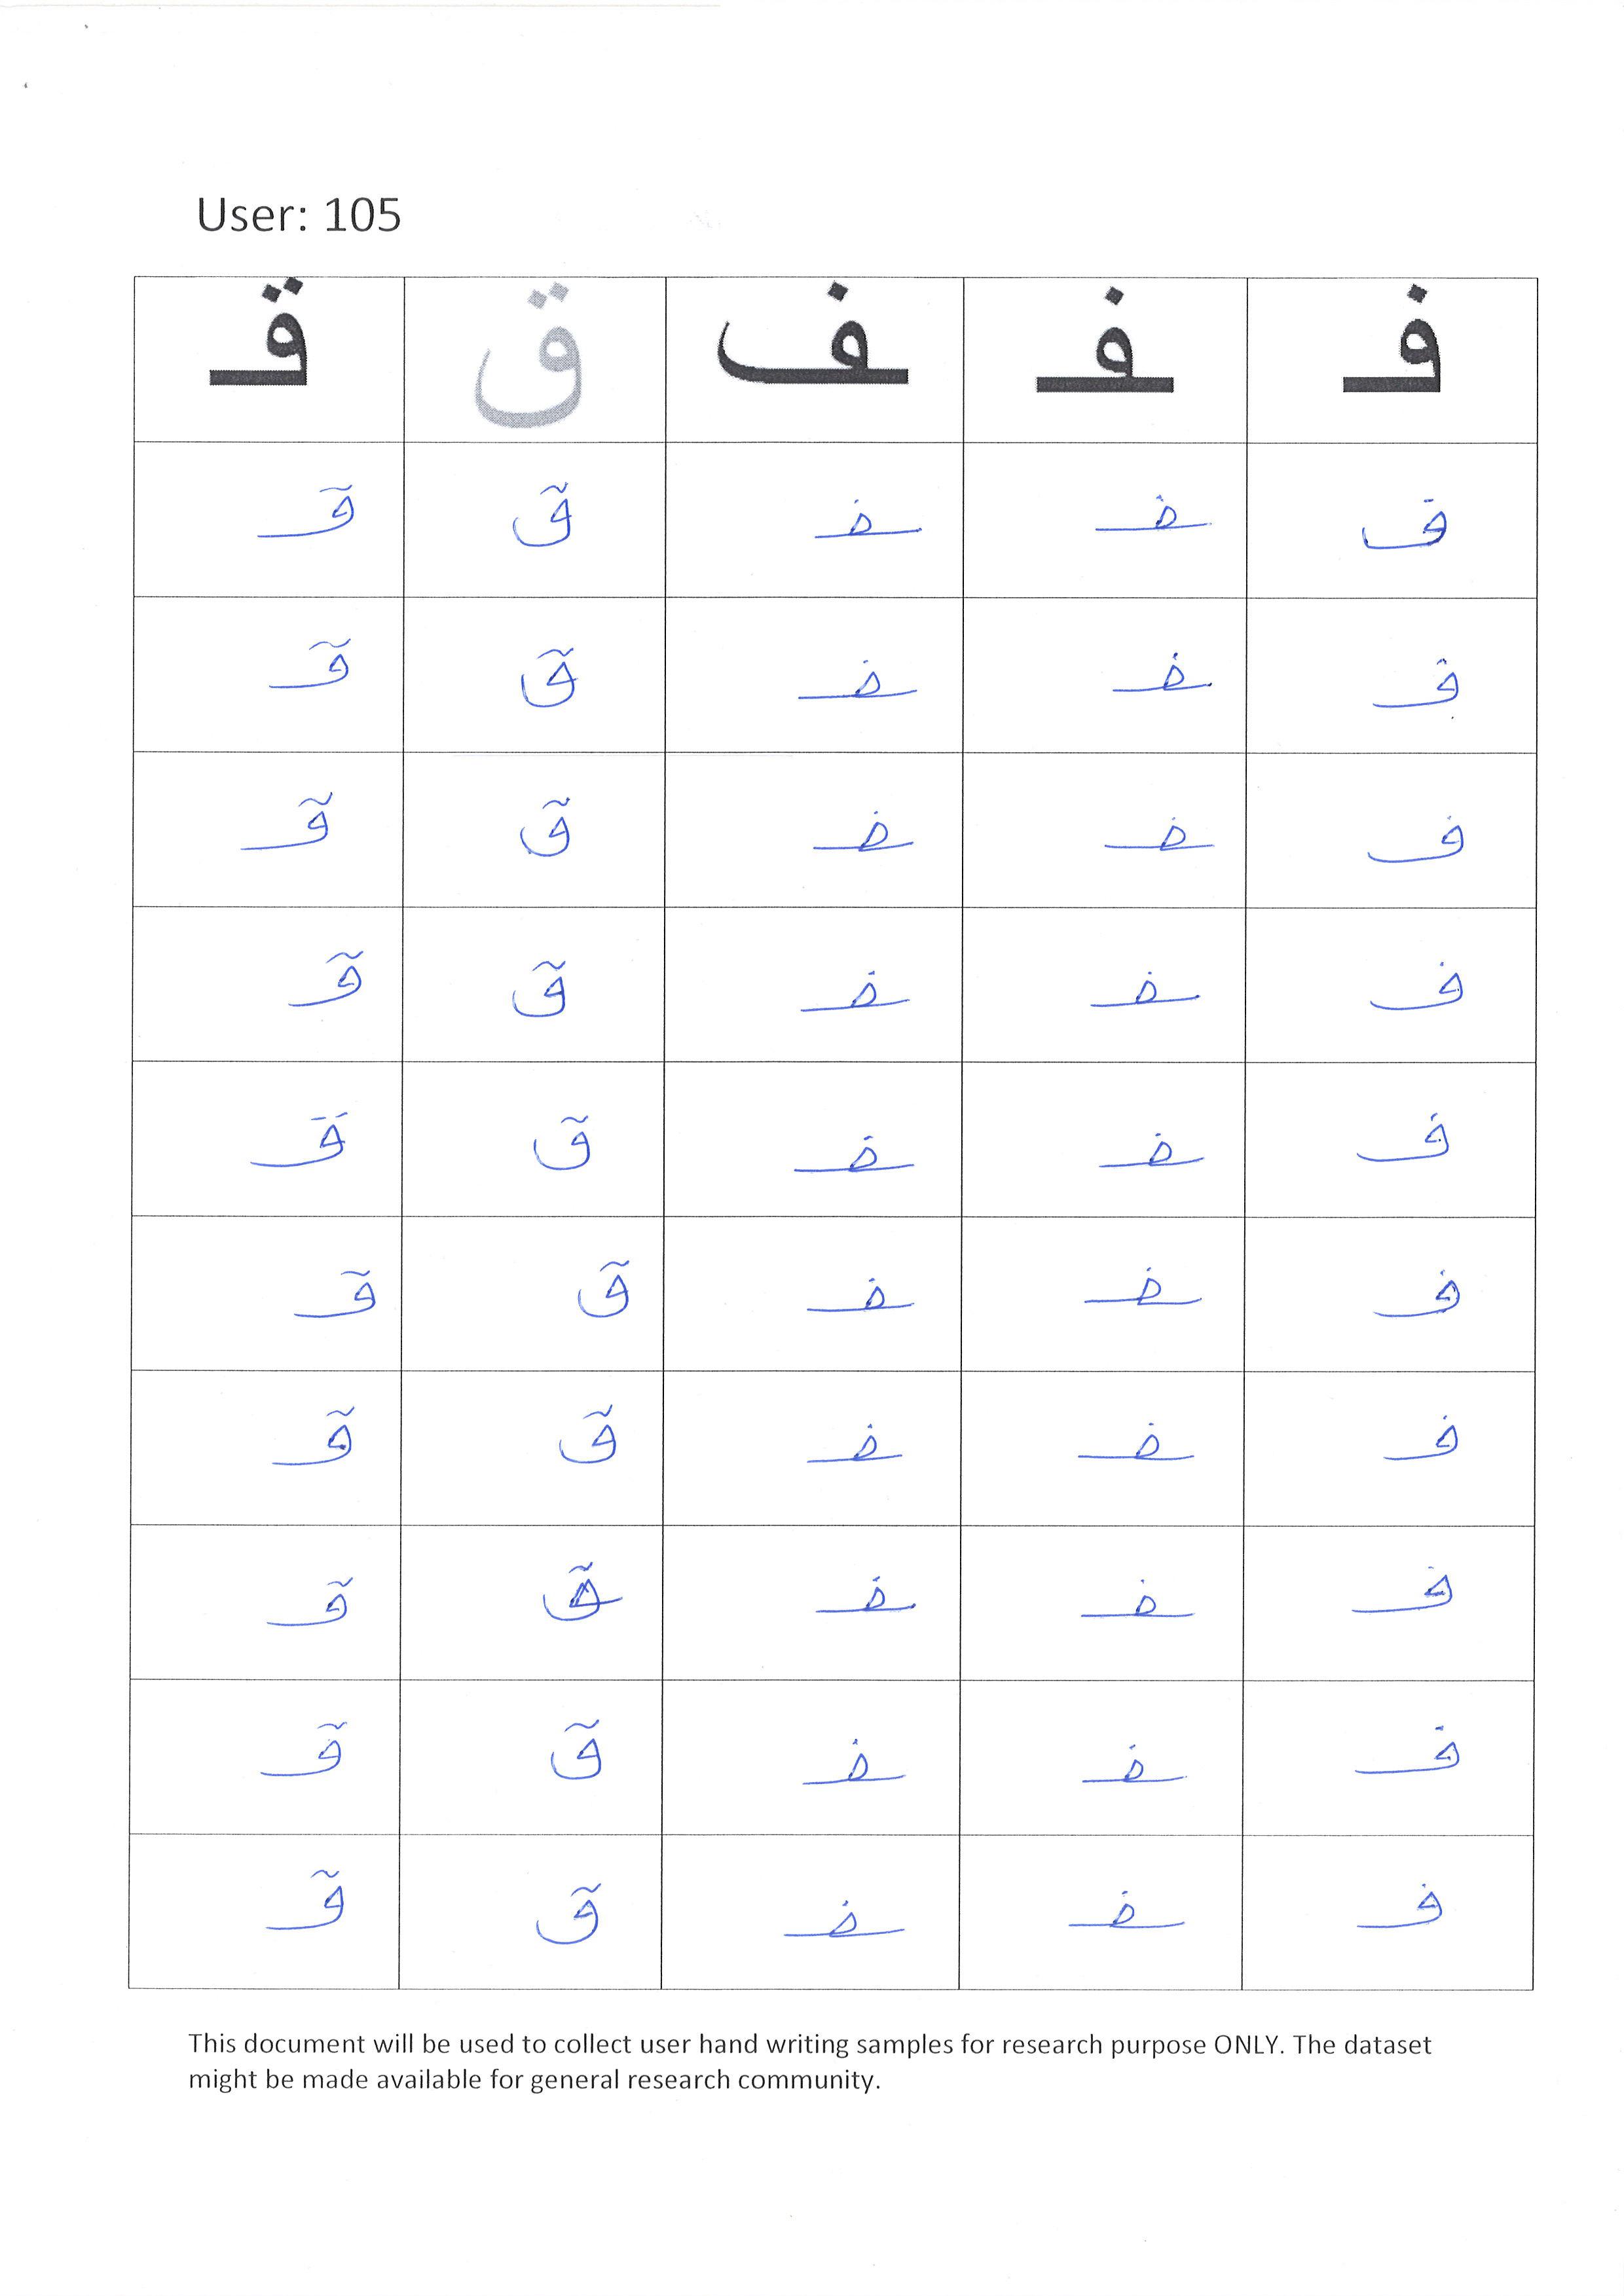 User: 105
فـ ـفـ ـف ق قـ
فـ ـفـ ـفـ ق قـ
فـ ـفـ ـفـ ق قـ
فـ ـفـ ـفـ ق قـ
فـ ـفـ ـفـ ق قـ
فـ ـفـ ـفـ ق قـ
فـ ـفـ ـفـ ق قـ
فـ ـفـ ـفـ ق قـ
فـ ـفـ ـفـ ق قـ
فـ ـفـ ـفـ ق قـ
فـ ـفـ ـفـ ق قـ
This document will be used to collect user hand writing samples for research purpose ONLY. The dataset
might be made available for general research community.